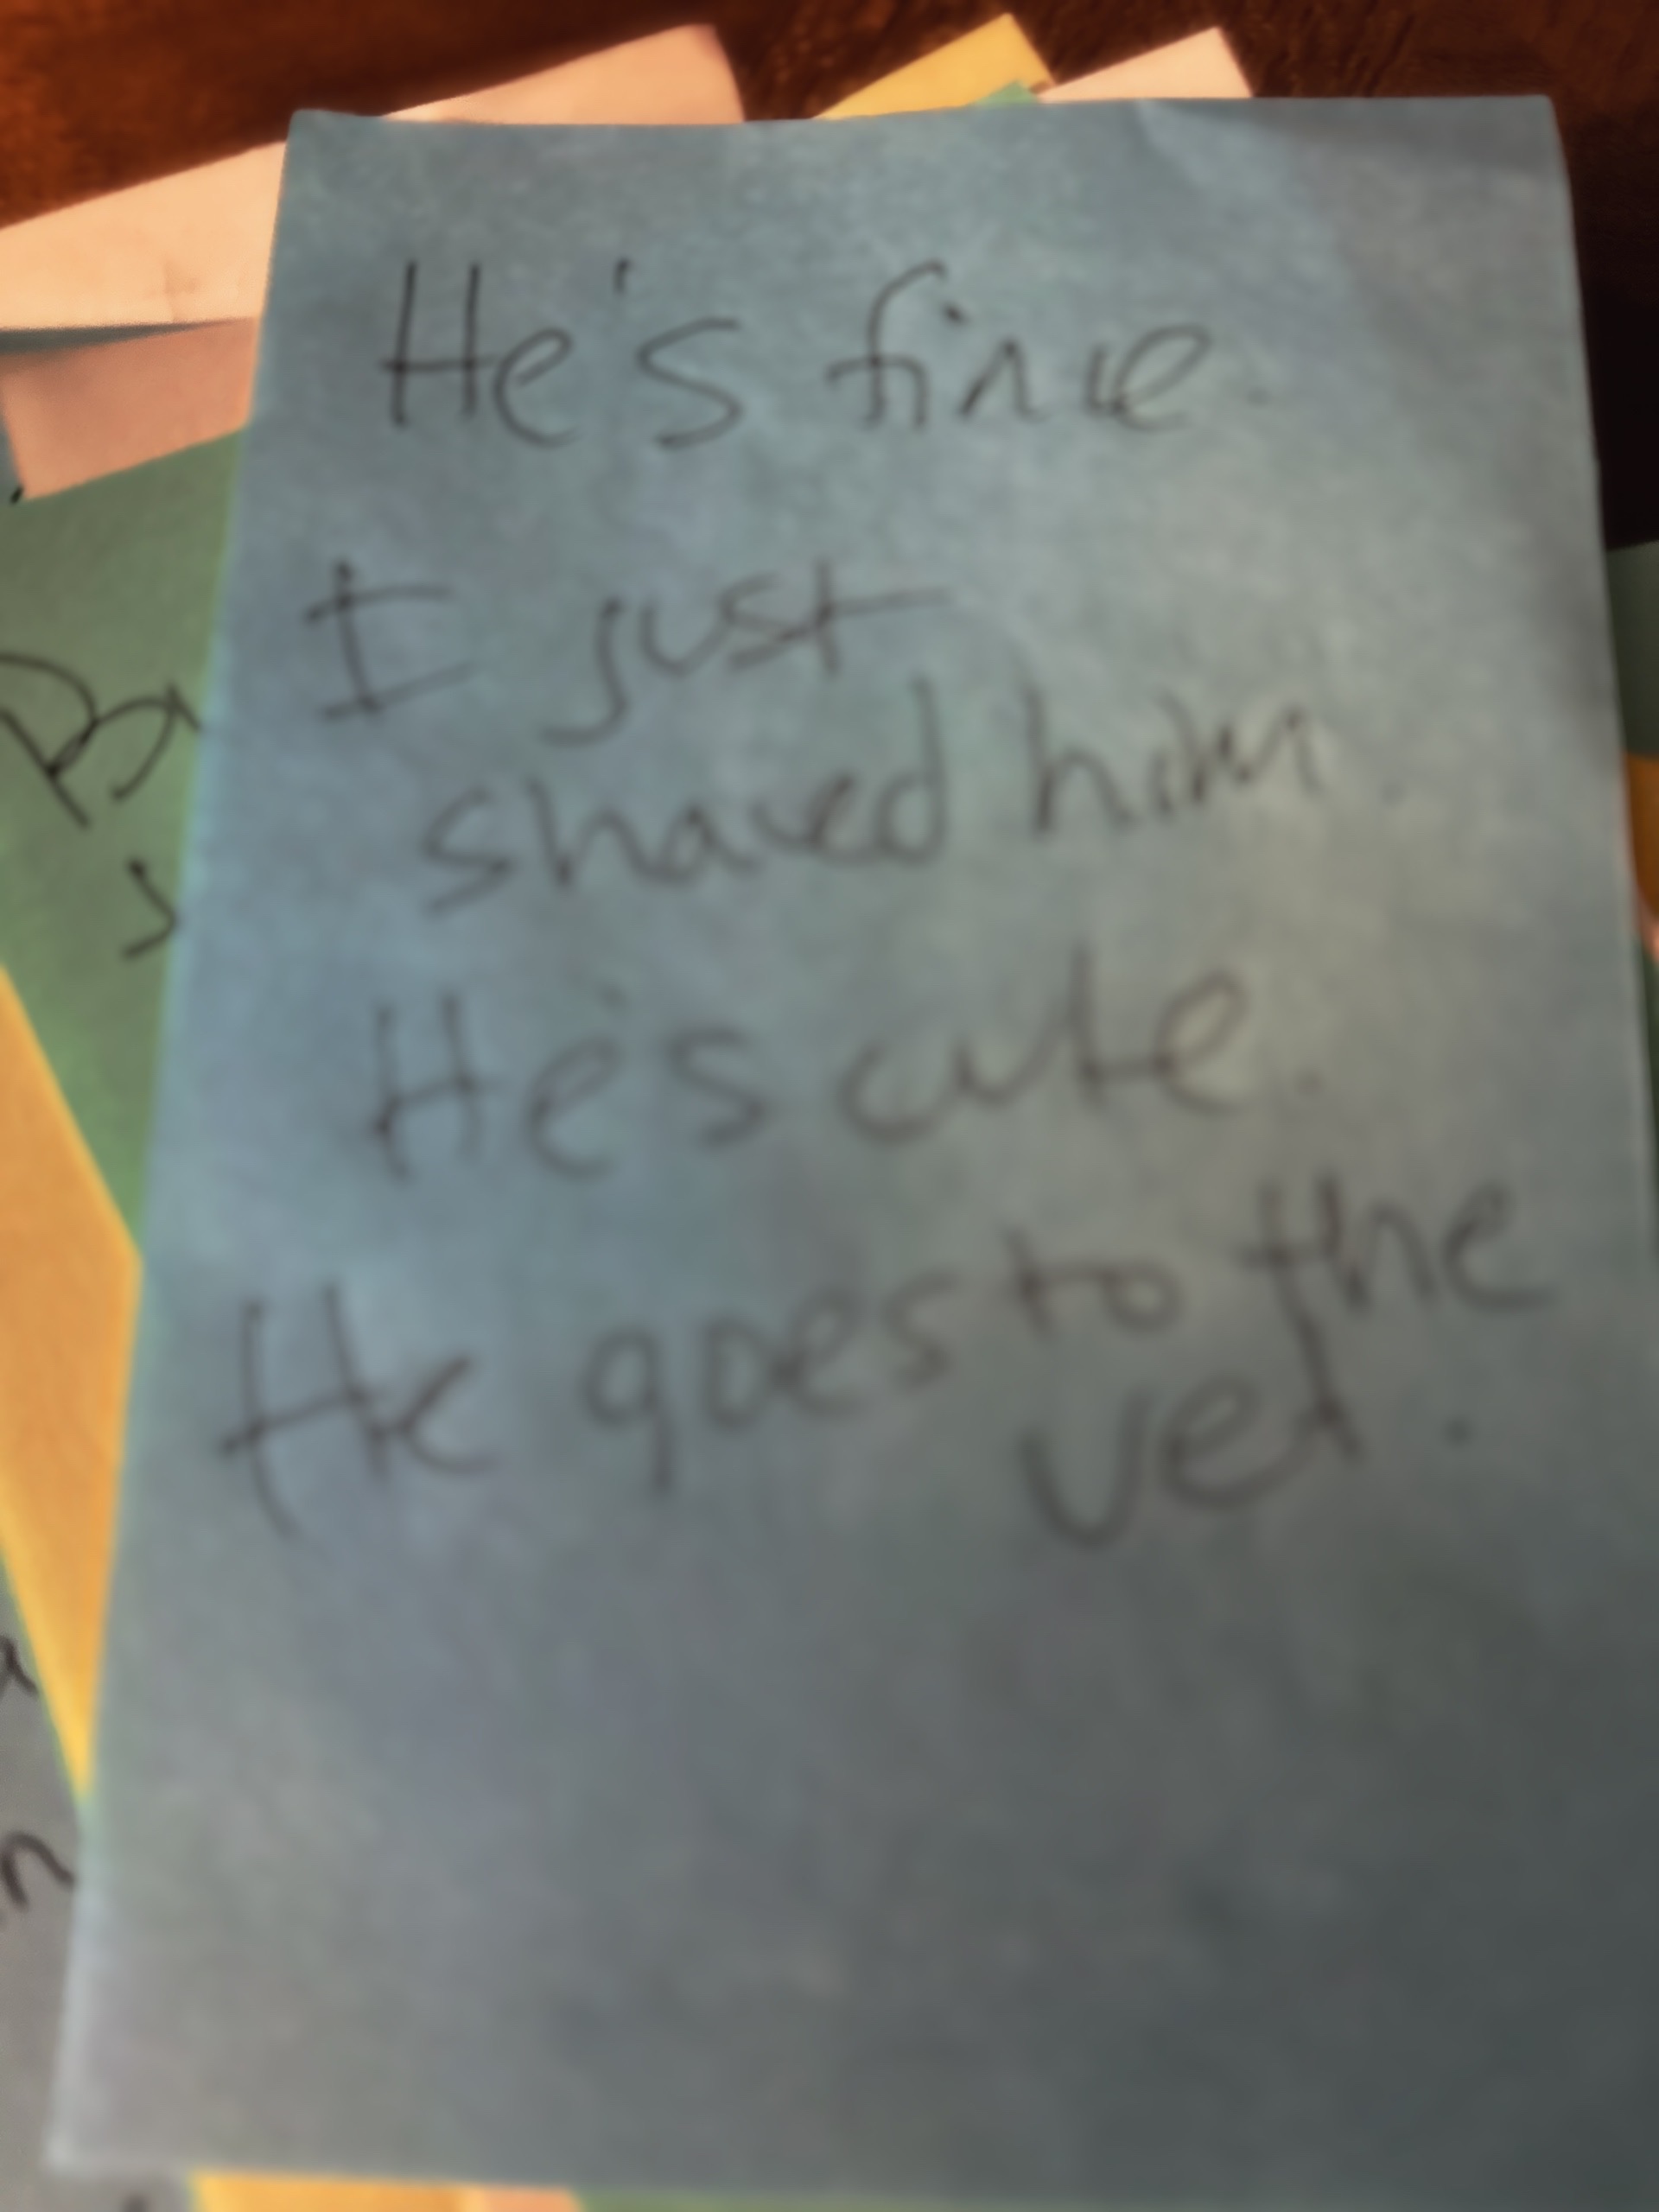 He's fine.
I just
shaved him.
He's cute.
He goes to the
vet.